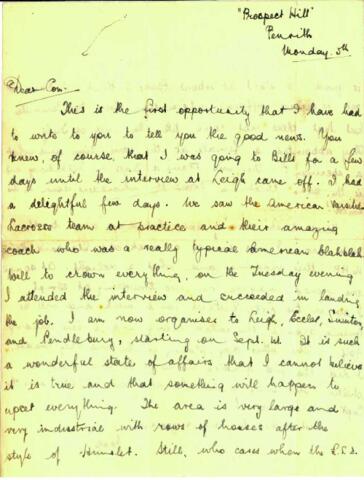 "Prospect Hill"
Penrith
Monday. 5th
Dear Con.
This is the first opportunity that I have had
to write to you to tell you the good news. You
knew, of course, that I was going to Bills for a few
days until the interview at Leigh came off. I had
a delightful few days. We saw the American
Lacrosse team at practice and their amazing
coach who was a really typical American
Well to crown everything, on the Tuesday evening
I attended the interview and succeeded in landing
the job. I am now organiser to Leigh, Eccles, Swinton
and Pendlebury, starting on Sept. 1st. It is such
a wonderful state of affairs that I cannot believe
it is true and that something will happen to
upset everything. The area is very large and
very industrial with rows of houses after the
style of Hunslet. Still, who cares when the